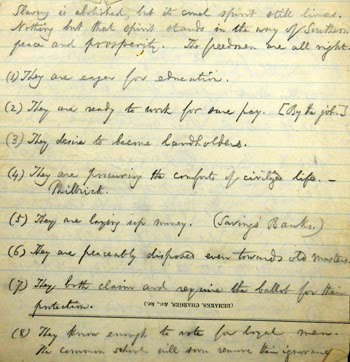 Slavery is abolished, but its cruel spirit still lives.
Nothing but that spirit stands in the way of Southern
peace and prosperity. The freedmen are all right.
(1) They are eager for education.
(2) They are ready to work for sure pay. [By the job.]
(3) They desire to become landholders.
(4) They are procuring the comforts of civilized life. –
Philbrick.
(5) They are laying up money. (Savings Banks)
(6) They are peaceably disposed even towards old masters.
(7) They both claim and require the ballot for their
protection.
(REMARKS, CHARGES, &c., &c.)
(8) They know enough to vote for loyal men.
The common school will soon remove their ignorance